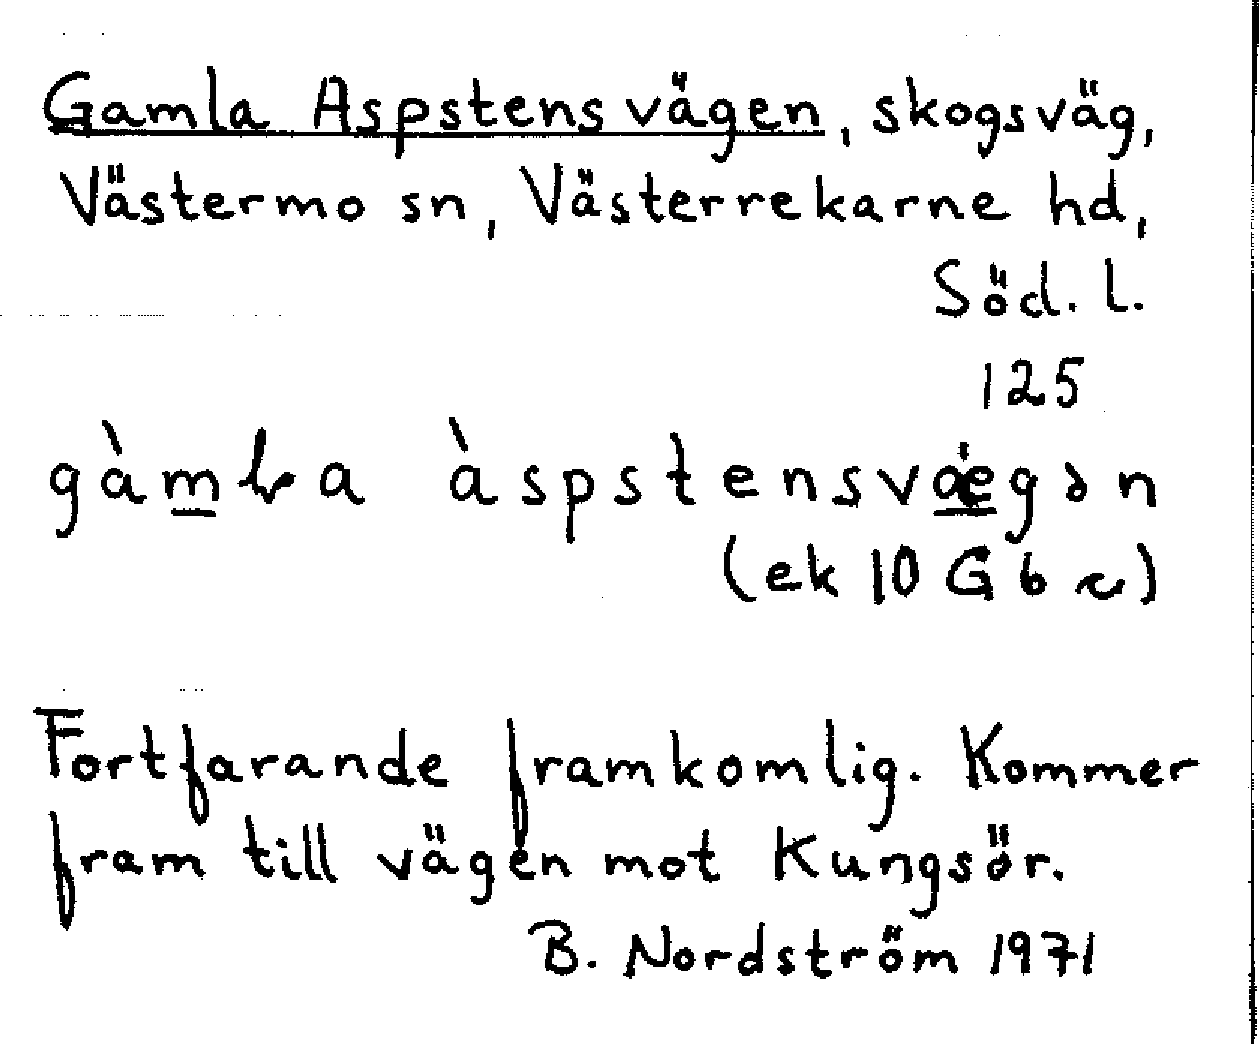 Gamla Aspstensvägen, skogsväg,
Västermo sn, Västerrekarne hd,
Söd. l.
125
gàmɫa àspstensvæ̇gən
(ek 10 G b c)
Fortfarande framkomlig. Kommer
fram till vägen mot Kungsör.
B. Nordström 1971